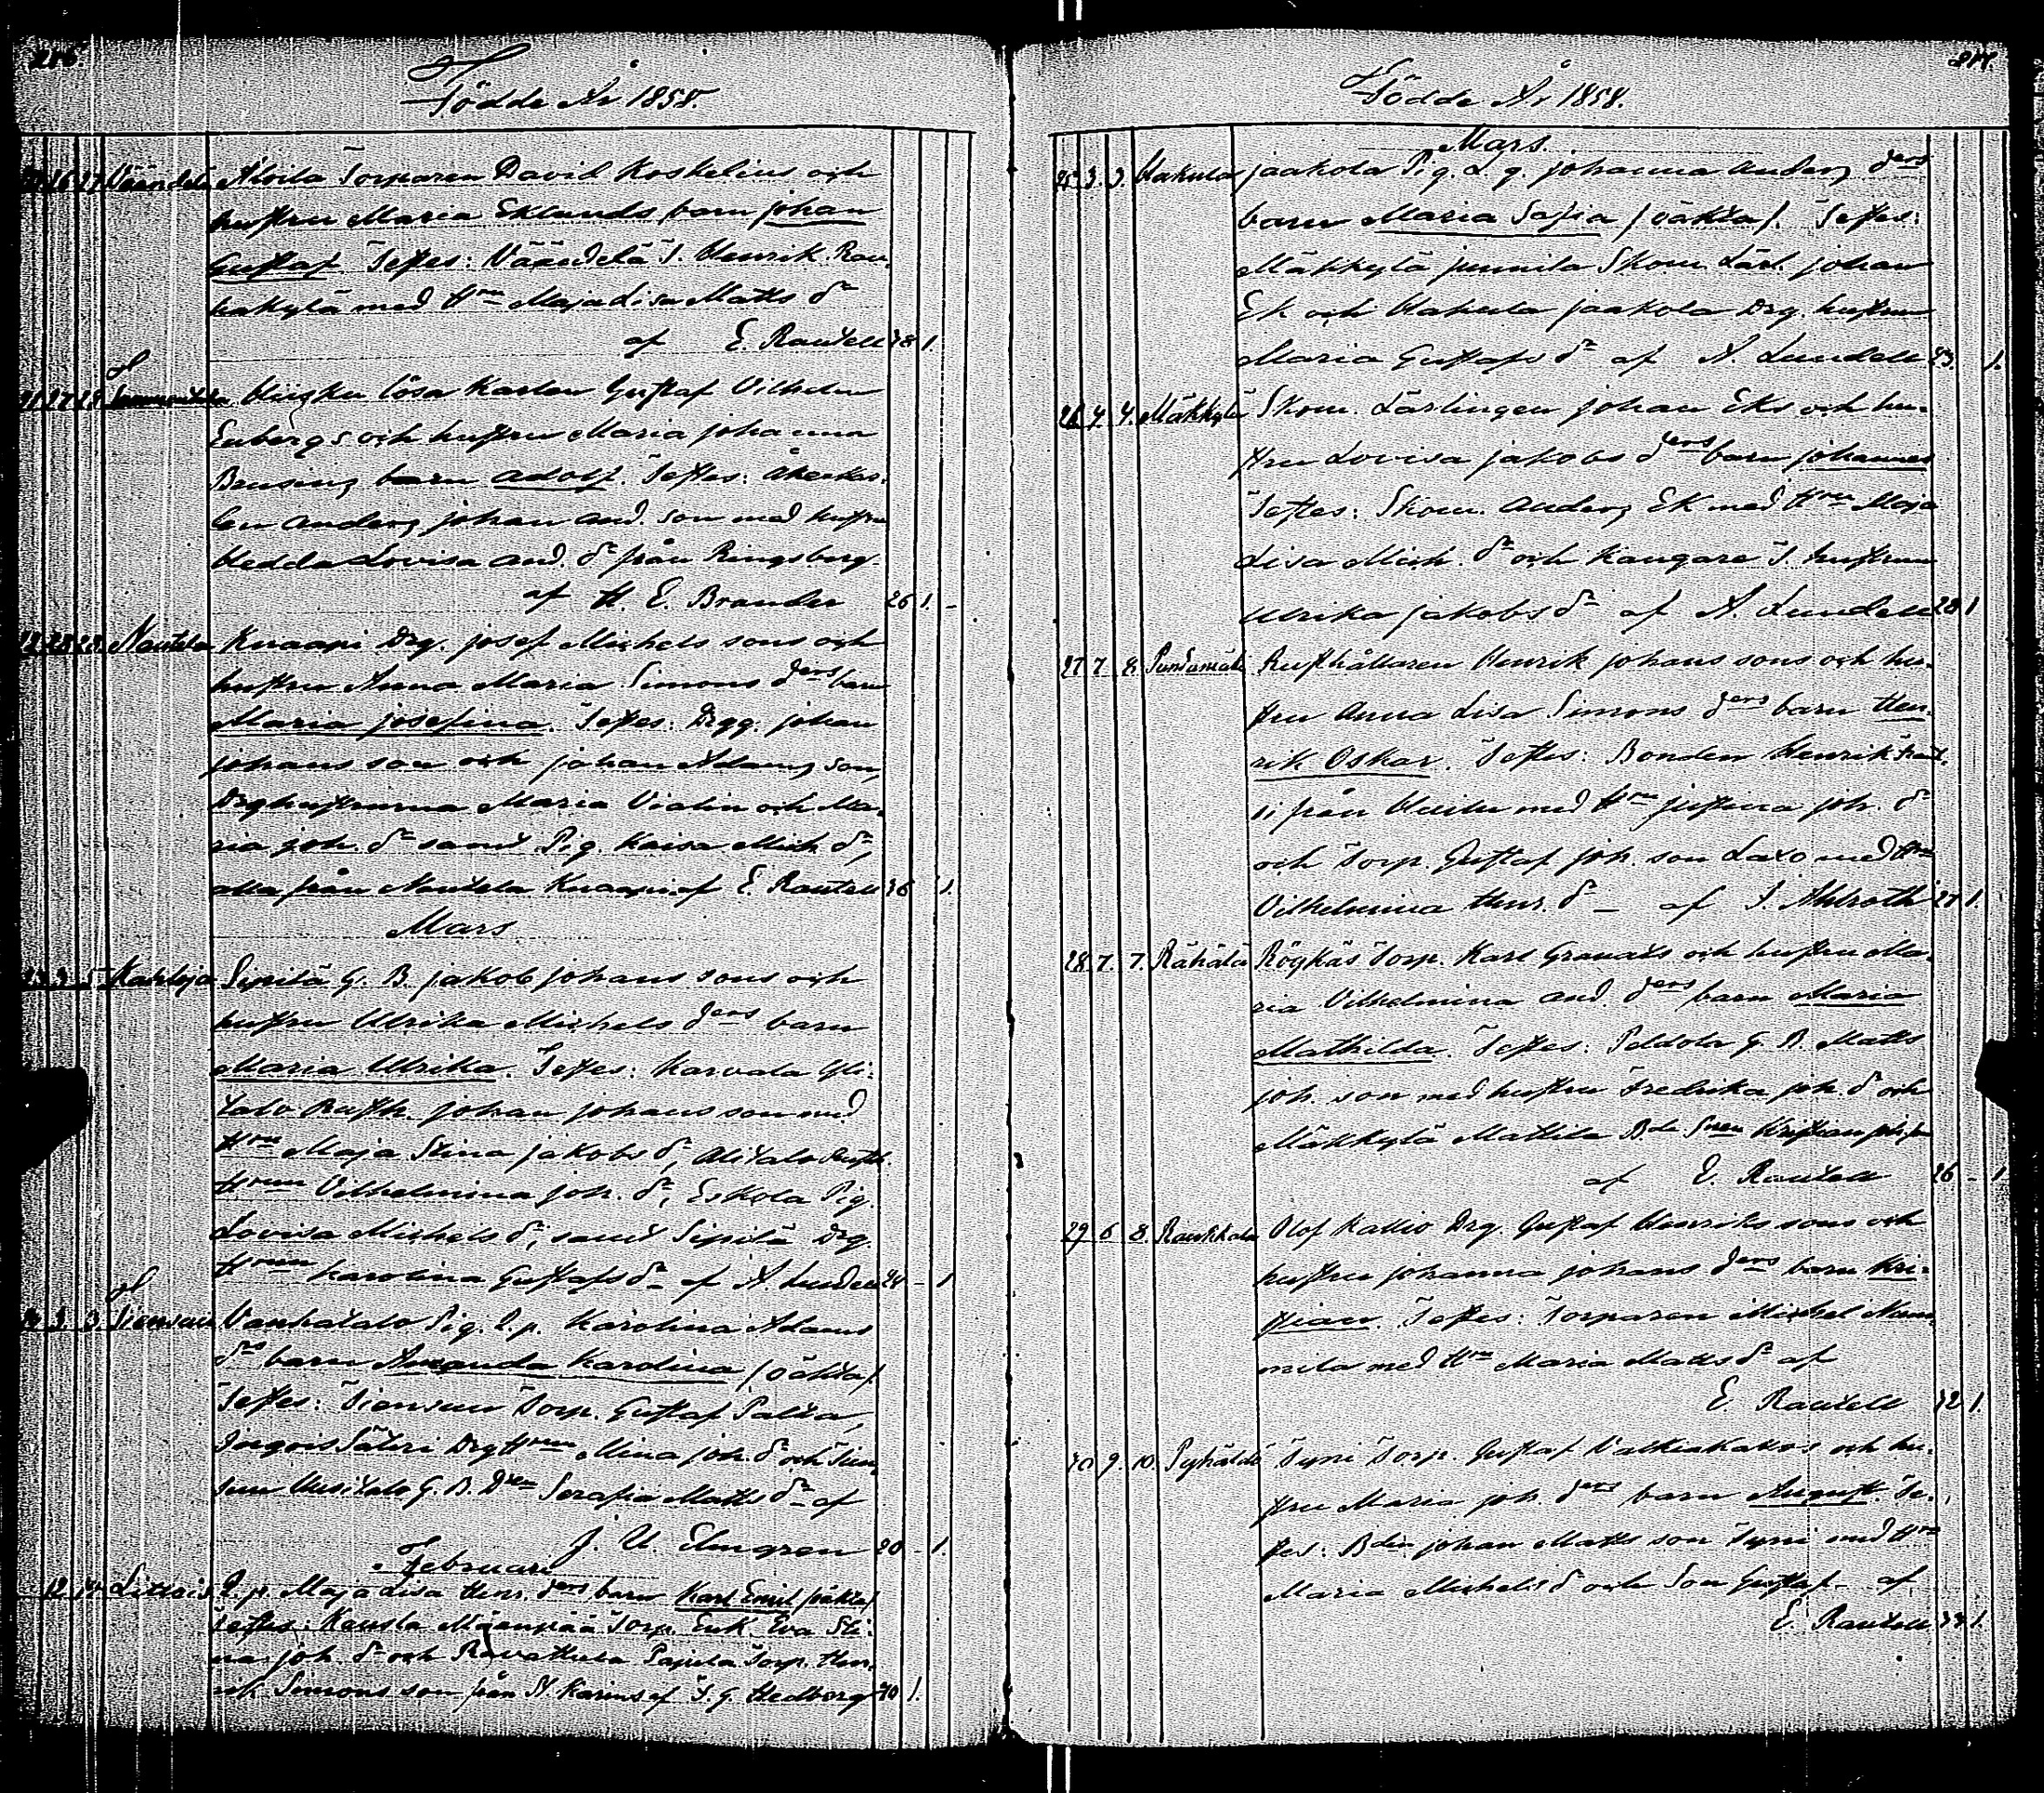 216
Födde År 1858.
26 27 Väändelä Aloila Torparen David Koskelius och
hustru Maria Eklunds barn Johan
Gustaf. Testes: Väändelä T. Henrik Rau-
hakylä med H:ru Maja Lisa Matts d:r
af E. Rautell 38 1.
27 28 lösa Karlen Gustaf Vilhelm
Enbergs och hustru Maria Johanna
barn Adolf. Testes: Åkerkar-
len Anders Johan And. son med hustru
Hedda Lovisa And. d:r från Ringsborg.
af H. E. Brander 26 1. -
22 28 28. Nautela Knaapi Drg. Josef Michels sons och
hustru Anna Maria Simons d:ers barn
Maria Josefina. Testes: Drgg. Johan
Johans son och Johan Adams son,
Drghustrurna Maria Violin och Ma-
ria Joh. d:r samt Pig. Kaisa Mich. d:r,
alla från Nautela Knaapi af E. Rautell 36 1.
Mars
23 3 5 Sipilä G. B. Jakob Johans sons och
hustru Ulrika Michels d:ers barn
Maria Ulrika. Testes: Karvala Yli-
talo Rusth. Johan Johans son med
H:ru Maja Stina Jakobs d:r, Alitalo Rusth.
H:run Vilhelmina Joh. d:r, Eskola Pig.
Lovisa Michels d:r, samt Sipilä Drg.
H:run Karolina Gustafs d:r af A. Lundell 24 - 1
24 3. 3. Vanhatalo Pig. Karolina Adams
d:ers barn Amanda Karolina /oäkta/.
Testes: Torp. Gustaf
Säteri Drg H:run Mina Joh. d:r och
Uusitalo G. B. D:ren Serafia Matts d:r af
J. U. Elmgren 20 - 1.
Februari
12. 14. Littois Maja Lisa Henr. d:ers barn Karl Emil /oäkta/
Testes: Kausla Mäenpää Torp. Enk. Eva Sti-
na Joh. d:r och Ravattula Papula Torp. Hen-
rik Simons son från St. Karins af T. G. Hedberg 40 1.
217.
Födde År 1858.
Mars.
25 3. 3. Hakula Jaakola Pig. Johanna Anders d:ers
barn Maria Safia /oäkta/. Testes:
Mäkkylä Junnila Skom. Lärl. Johan
Ek och Hakula Jaakola Drg. hustrun
Maria Gustafs d:r af A. Lundell 23. 1.
26 4. 4. Mäkkylä Skom. Lärlingen Johan Eks och hu-
stru Lovisa Jakobs d:ers barn Johannes
Testes: Skom. Anders Ek med H:ru Maja
Lisa Mich. d:r och Kangare T. hustrun
Ulrika Jakobs d:r af A. Lundell 28 1
27 7. 8. Rusthållaren Henrik Johans sons och hu-
stru Anna Lisa Simons d:ers barn Hen-
rik Oskar. Testes: Bonden Henrik
från med H:ru Justina Joh. d:r
och Torp. Gustaf Joh. son Laxo med H:ru
Vilhelmina Henr. d:r - af I. Ahlroth 27 1.
28. 7. 7. Rähälä Röykäs Torp. Karl Granats och hustru Ma-
ria Vilhelmina And. d:ers barn Maria
Mathilda. Testes: Peldola G. B. Matts
Joh. son med hustru Fredrika Joh. d:r och
Mäkkylä Mattila
af E. Rautell 26 - 1
29. 6 8. Raukkala Olof Kallio Drg. Gustaf Henriks sons och
hustru Johanna Johans d:ers barn Kri-
stian. Testes: Torparen Michel
med H:ru Maria Matts d:r af
E. Rautell 32 1.
30 9. 10. Pyhältö Tyni Torp. Gustaf och hu-
stru Maria Joh. d:ers barn August. Te-
stes: B:den Johan Matts son Tyni med H:ru
Maria Michels d:r och Son Gustaf - af
E. Rautell 1.